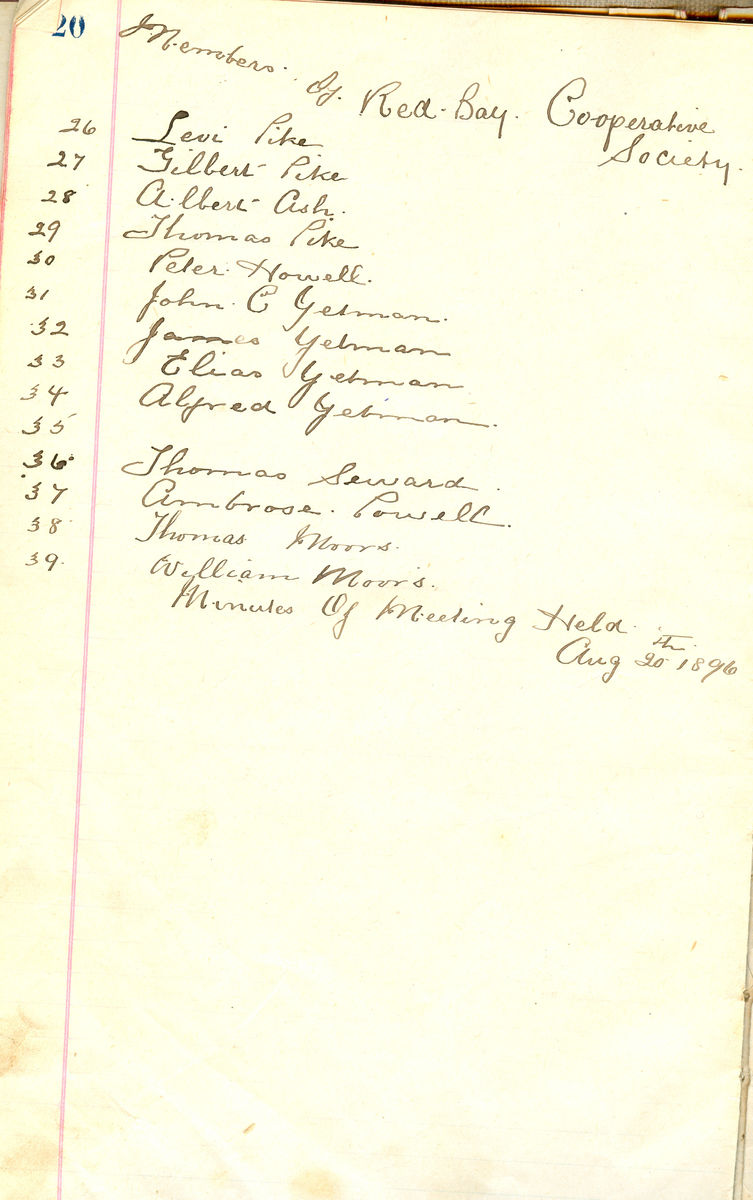 20
Members. Of. Red. Bay. Cooperative
Society.
26 Levi Pike
27 Gilbert Pike
28 Albert Ash.
29 Thomas Pike
30 Peter. Howell.
31 John. C Yetman.
32 James Yetman
33 Elias Yetman
34 Alfred Yetman.
35
36 Thomas Seward.
37 Ambrose. Powell.
38 Thomas Moors.
39. William Moors.
Minutes Of Meeting Held.
Aug 20th 1896